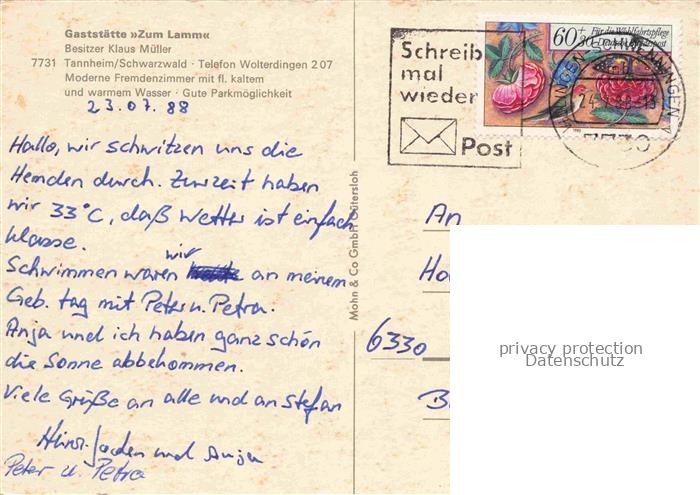 Gaststätte »Zum Lamm«
Besitzer Klaus Müller
7731 Tannheim/Schwarzwald · Telefon Wolterdingen 2 07
Moderne Fremdenzimmer mit fl. kaltem
und warmem Wasser · Gute Parkmöglichkeit
23.07.88
Hallo, wir schwitzen uns die
Hemden durch. Zurzeit haben
wir 33°C, daß Wetter ist einfach
klasse.
Schwimmen waren wir an meinem
Geb. tag mit Peter u. Petra.
Anja und ich haben ganz schön
die Sonne abbekommen.
Viele Grüße an alle und an Stefan
und Anja
Peter u. Petra
Mohn & Co GmbH Gütersloh
Schreib
mal
wieder
Post
60+30
Für die Wohlfahrtspflege
Deutsche Bundespost
VILLINGEN-SCHWENNINGEN
7730
An
6330
privacy protection
Datenschutz